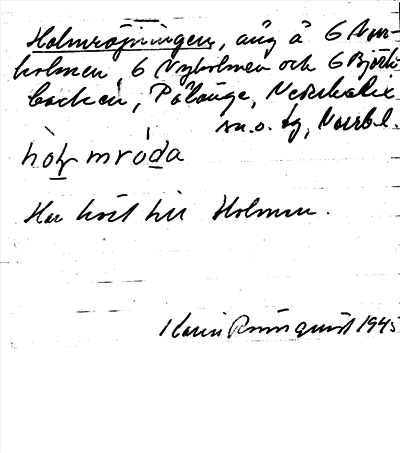 Holmröjningen, äng å 6 Nur-
holmen, 6 Nyholmen och 6 Björk-
backen, Pålänge, Nederkalix
sn. o. tg, Norrb l.
Har hört till Holmen.
Karin Rönnquist 1945